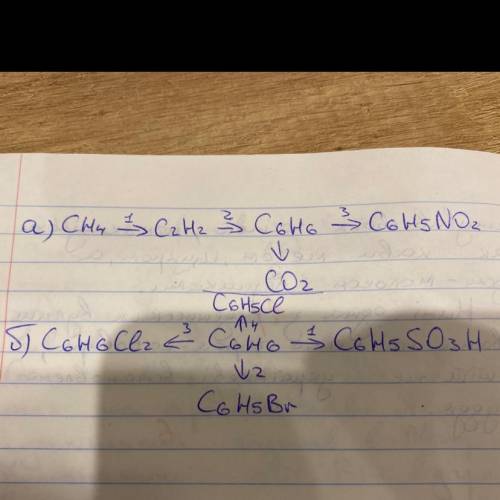 а) CH4 1→ C2H2 2→ C6H6 3→ C6H5NO2
↓
CO2
C6H5Cl
↑4
б) C6H6Cl2 3← C6H6 1→ C6H5SO3H
↓2
C6H5Br